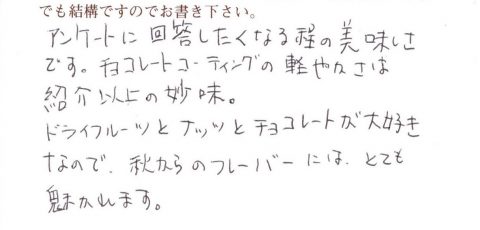 でも結構ですのでお書き下さい。
アンケートに回答したくなる程の美味しさ
です。チョコレートコーティングの軽やかさは
紹介以上の妙味。
ドライフルーツとナッツとチョコレートが大好き
なので、秋からのフレーバーには、とても
魅かれます。